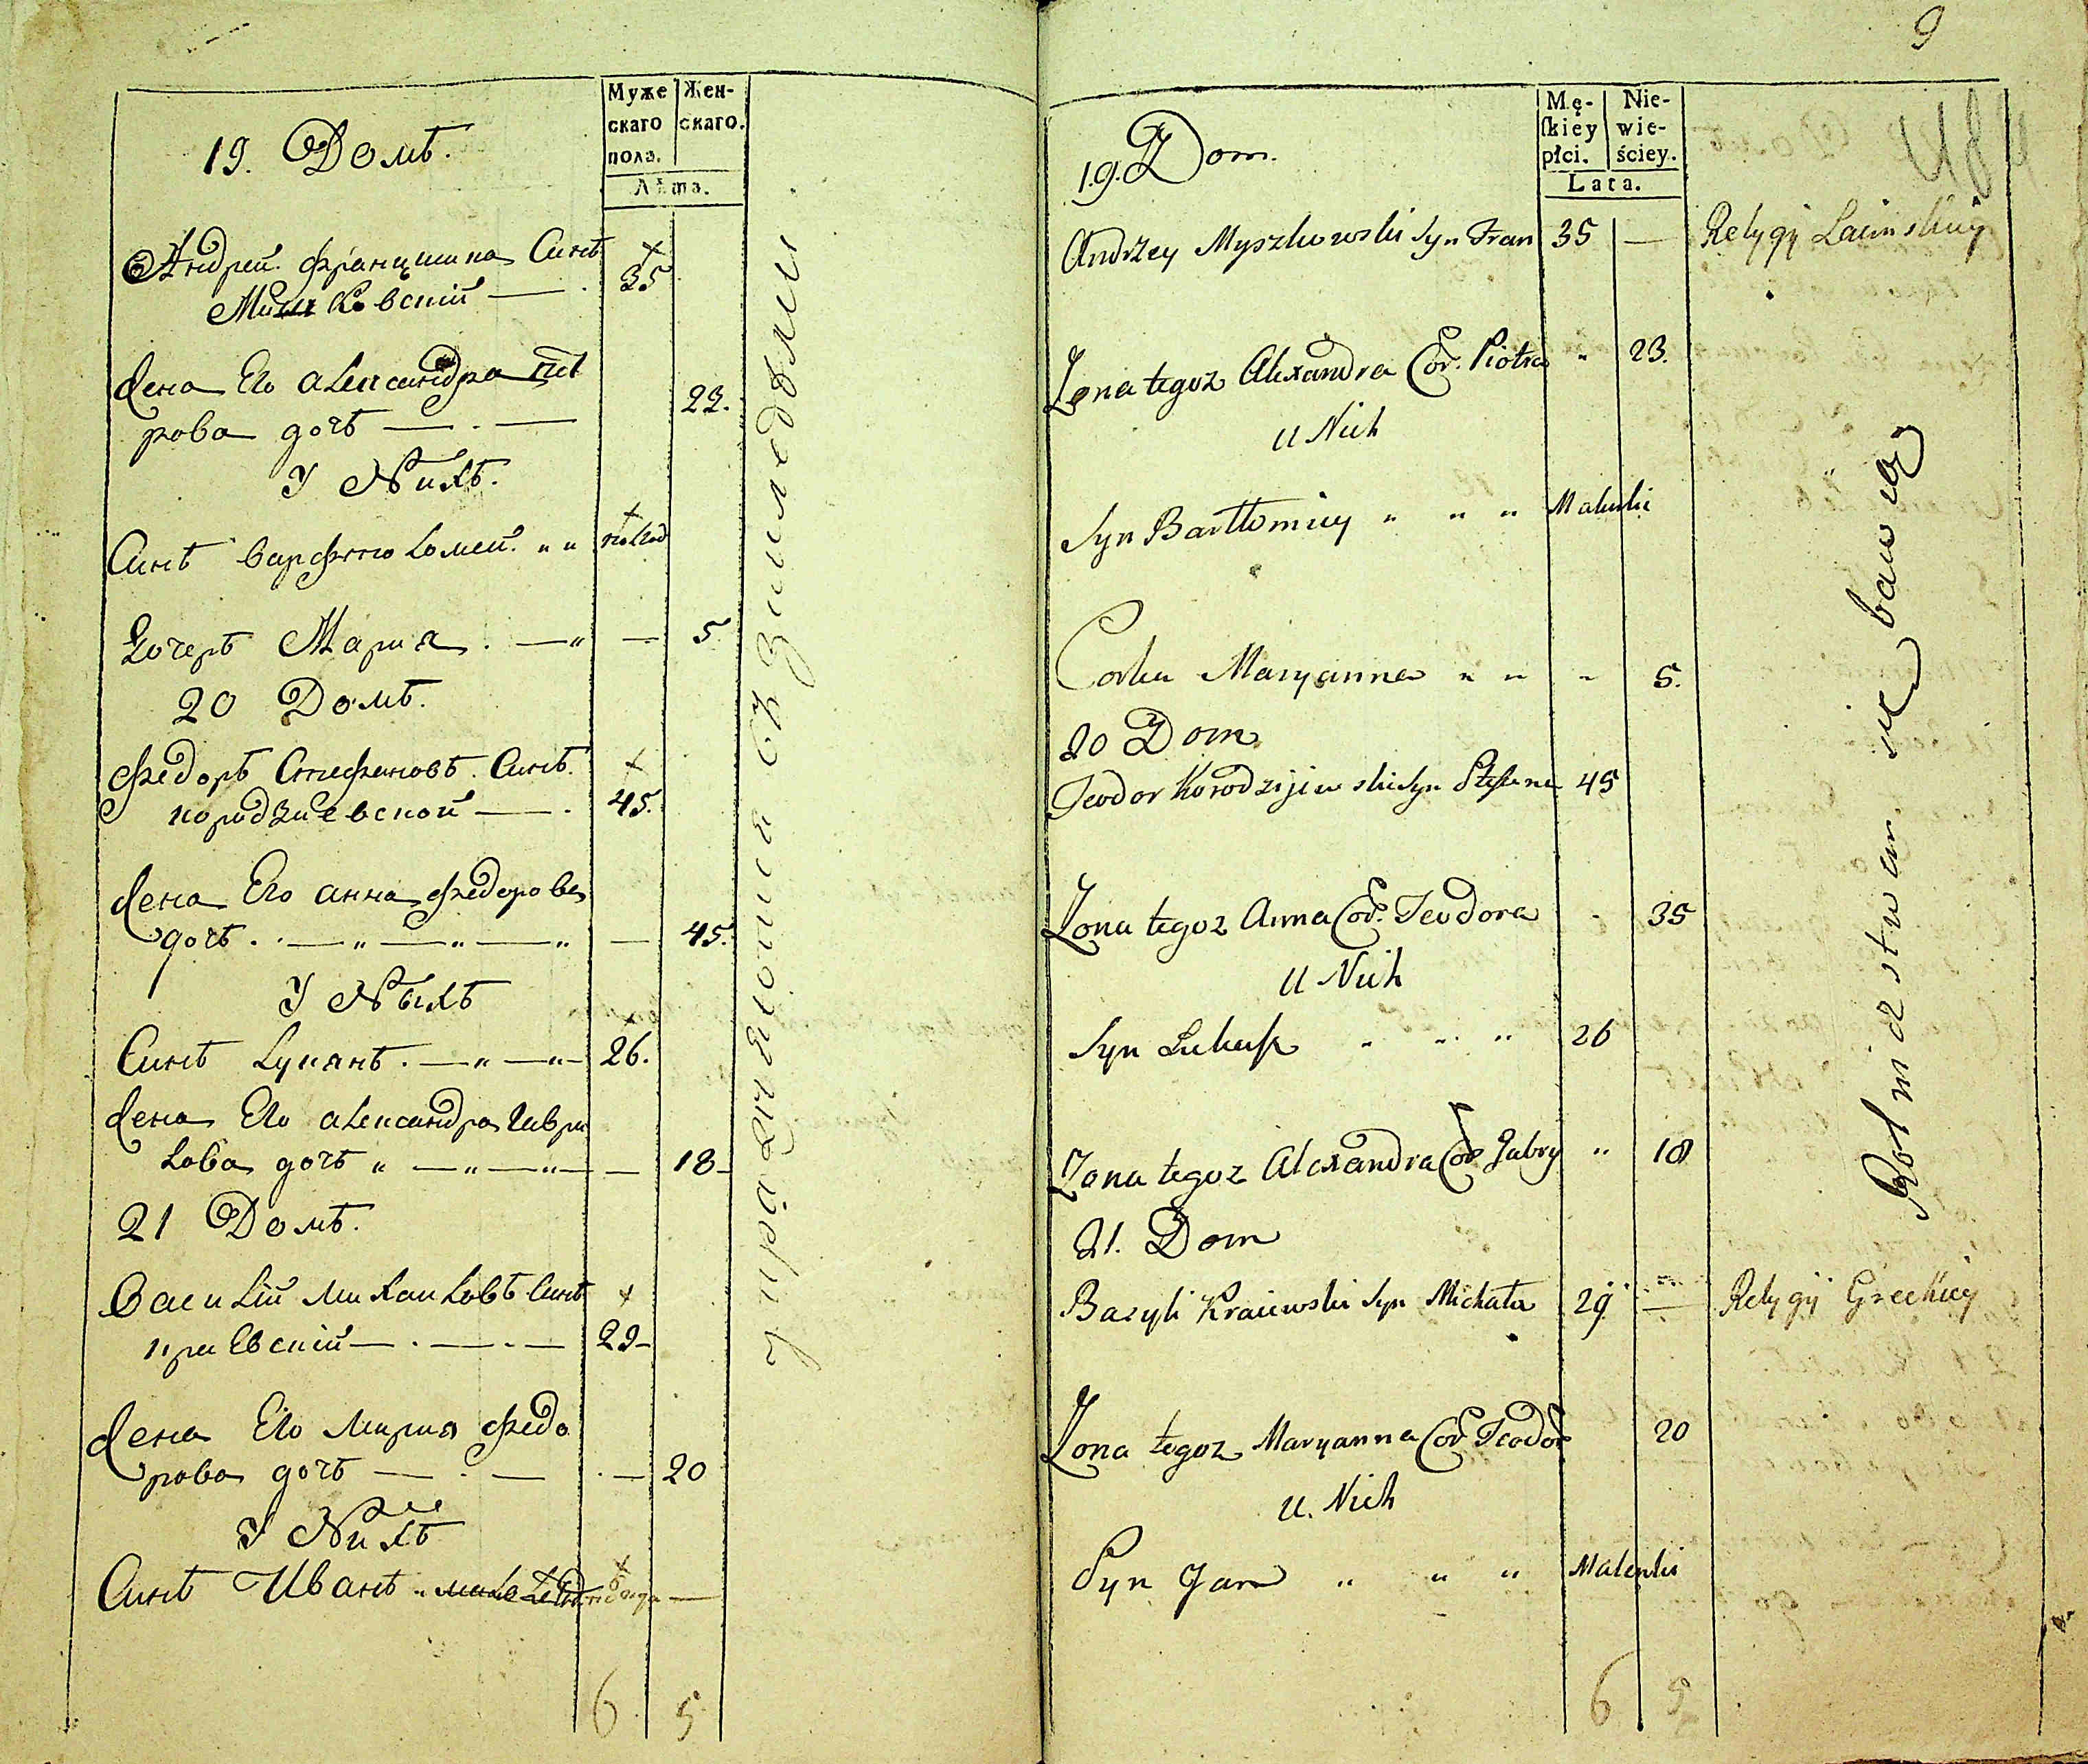 Муже
скаго
пола.
Жен-
скаго.
Лѣта.
19. Домъ.
Андрей Францишка Синъ 35
Мишковскій — .
Жена Его александра пет
рова дочъ — . — 23.
У Нихъ.
Синъ варфоломей. " " полгод
Дочеръ Мария . — " — 5.
20 Домъ.
Федоръ Стефановъ Синъ.
користиевской — . 45.
Жена Его анна Федорова
дочъ . — " — " — " — 45.
У Ныхъ
Синъ Лукянъ . — " — " — 26.
Жена Его александра Гаври
лова дочъ " — " — " — 18 —
21 Домъ.
Василий Михаиловъ Синъ
краевскій — . — . — 29 —
Жена Его Мария Федо
рова дочъ — . — . — 20
У Нихъ
Синъ Иванъ "
6 5
упражняютця въ зимледѣлии.
9
Mę-
ſkiey
płci.
Nie-
wie-
ściey.
Lata.
19. Dom.
Andrzey Myszkowski Syn Fran 35 — Relygij Łacinskiey
Zona tegoz Alexandra Cor. Piotra " 23.
U Nich
Syn Bartłomiey " " " Malenki
Corka Maryanna " " " 5.
20 Dom
Teodor Korodzijewski Syn Stefana 45
Zona tegoz Anna Cor. Teodora " 35
U Nich
Syn Łukasz " " " 26
Zona tegoz Alexandra Cor Gabry " 18
21. Dom
Bazyli Kraiewski Syn Michała 29 — Relygij Greckiey
Zona tegoz Maryanna Cor Teodor 20
U. Nich
Syn Jan " " " Malenki
6 5
Rolnidstwam sie bawią